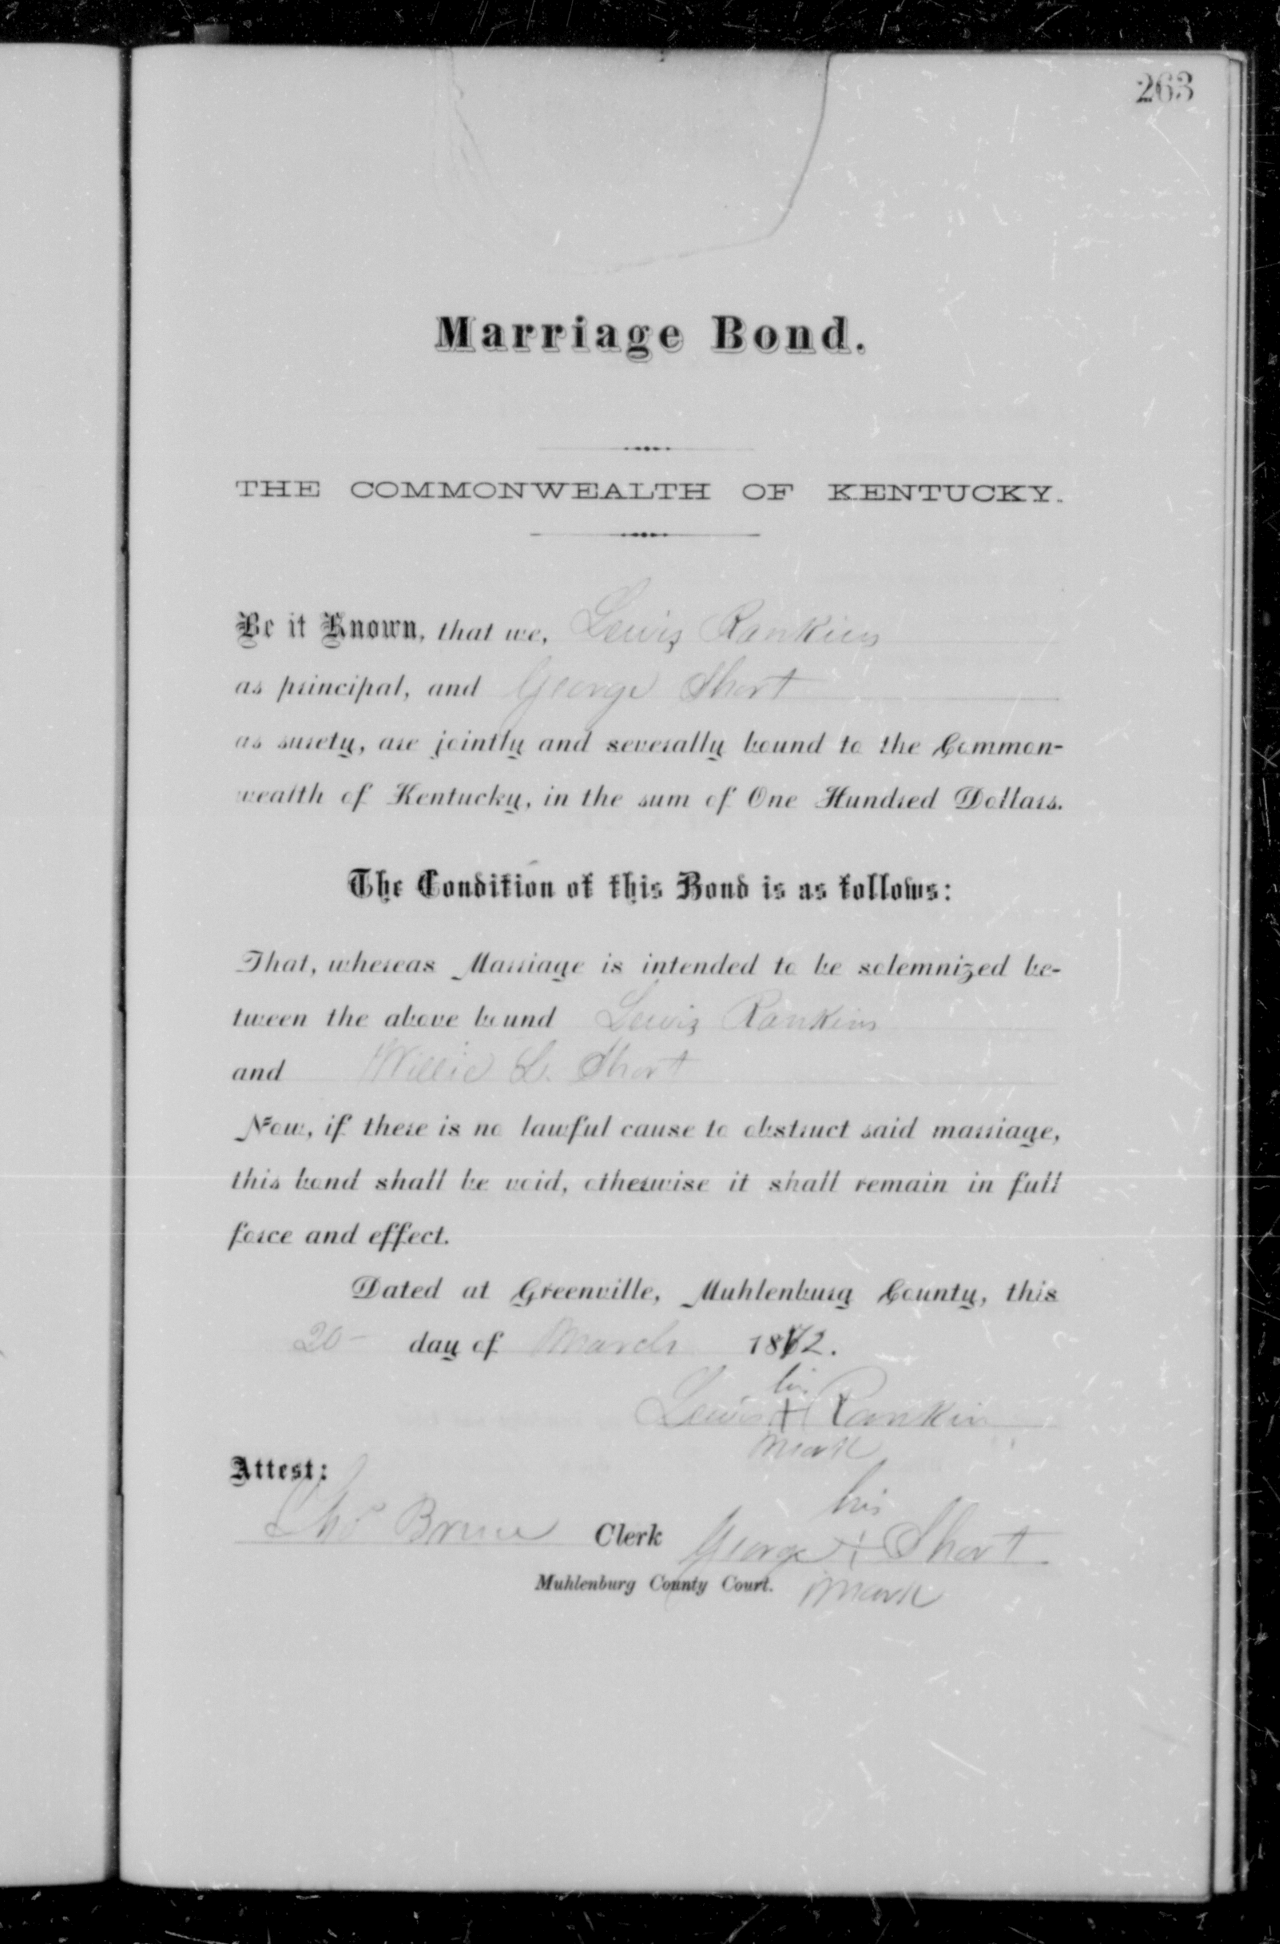 263
Marriage Bond.
THE COMMONWEALTH OF KENTUCKY.
Be it Known, that we, Lewis Rankins
as principal, and George Short
as surety, are jointly and severally bound to the Common-
wealth of Kentucky, in the sum of One Hundred Dollars.
The Condition of this Bond is as follows:
That, whereas Marriage is intended to be solemnized be-
tween the above bound Lewis Rankins
and Willie L. Short
Now, if there is no lawful cause to obstruct said marriage,
this bond shall be void, otherwise it shall remain in full
force and effect.
Dated at Greenville, Muhlenburg County, this
20 day of March 1872.
his
Lewis + Rankin
mark
Attest:
his
Tho Bruce Clerk George + Short
Muhlenburg County Court. mark